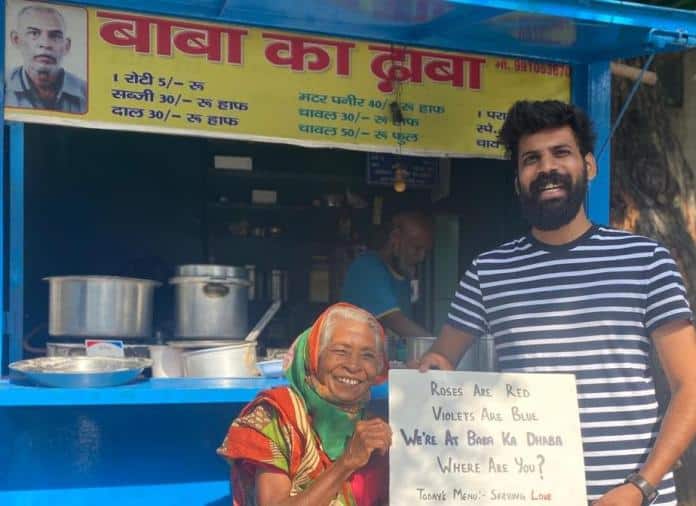 बाबा का ढ़ाबा
1 रोटी 5/- रू
सब्जी 30/- रू हाफ
दाल 30/- रू हाफ
मटर पनीर 40/- रू हाफ
चावल 30/- रू हाफ
चावल 50/- रू फुल
Roses Are Red
Violets Are Blue
We're At Baba Ka Dhaba
Where Are You?
Today's Menu:- Serving Love